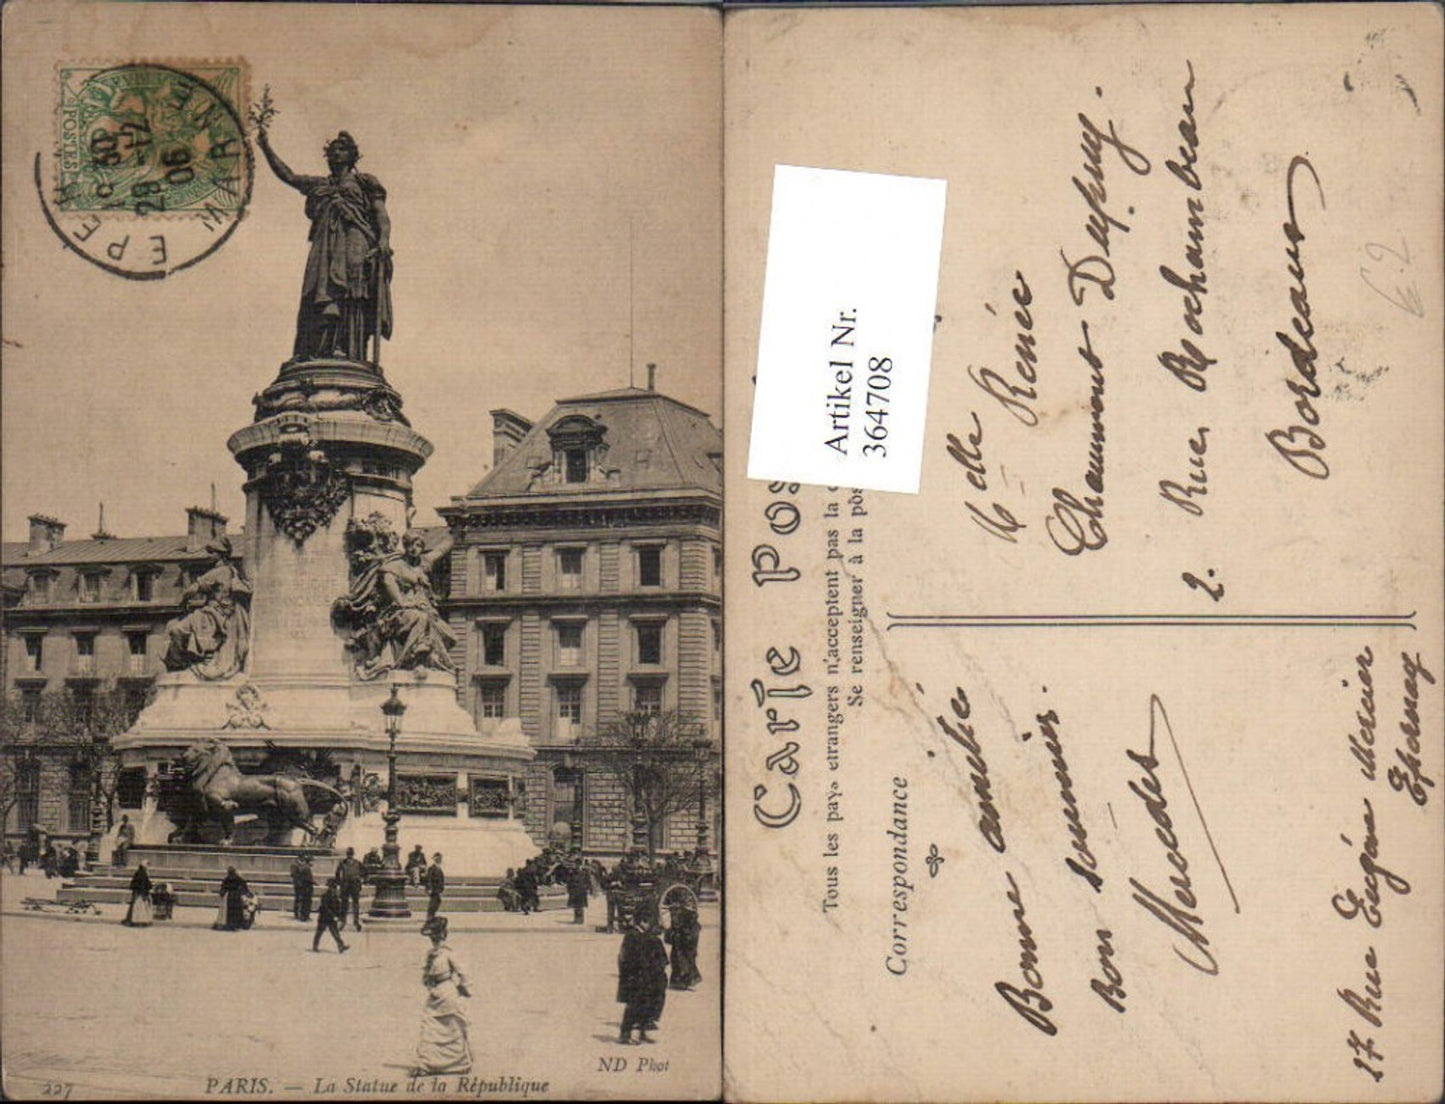 POSTES
EPERNAY MARNE
28 -12
06
227
PARIS. — La Statue de la République
ND Phot
Artikel Nr.
364708
Carte Pos
Tous les pays etrangers n'acceptent pas la c
Se renseigner à la pos
Correspondance
Melle Renée
Chaumont Dupuy.
2. Rue Rochambeau
Bordeaux
6.2
Bonne amitié
Bon souvenir.
Mercedes
27 Rue Eugène Mercier
Epernay